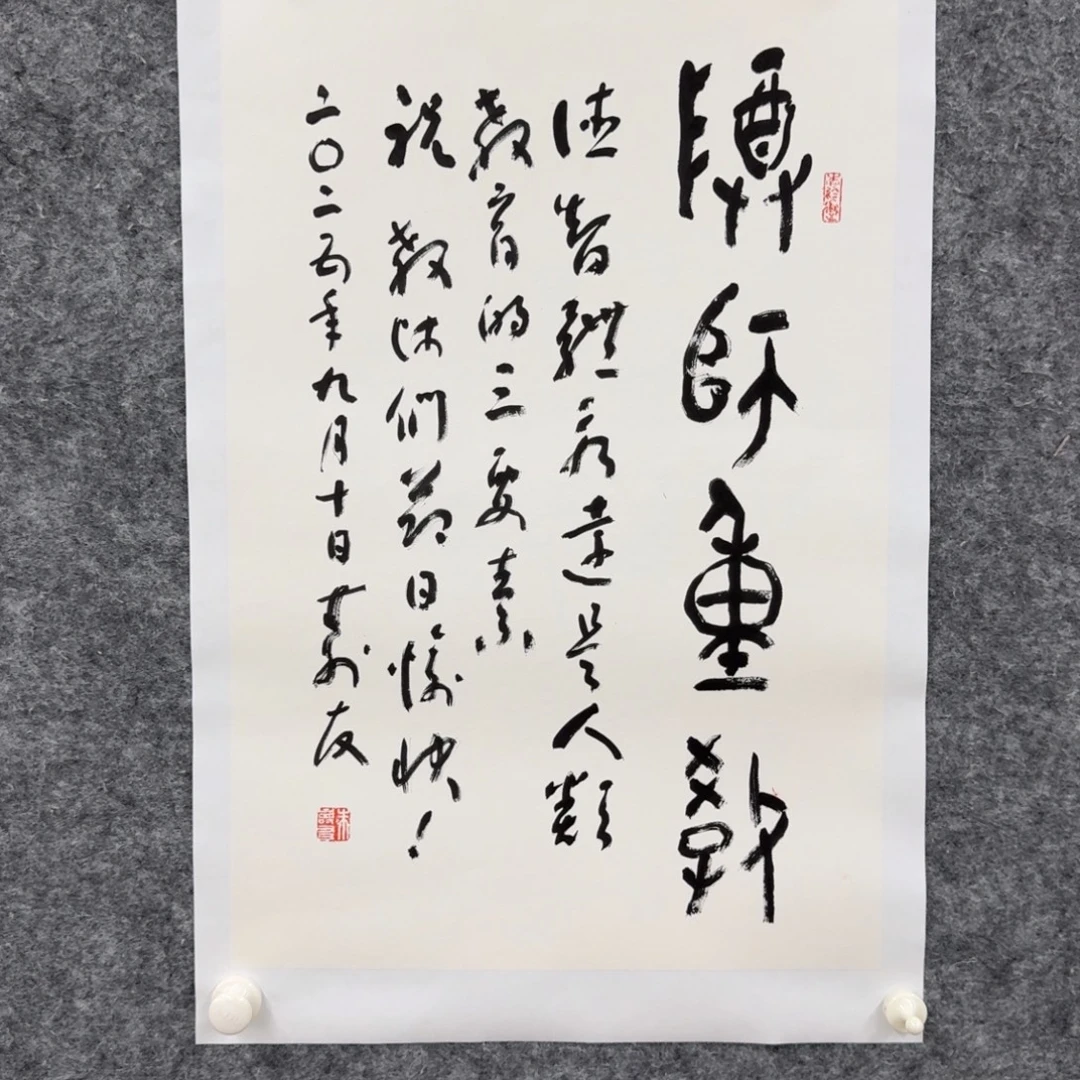 尊師重教
德智體永遠是人類
教育的三要素
祝教师們節日愉快！
二〇二五年九月十日 壽友
朱壽友